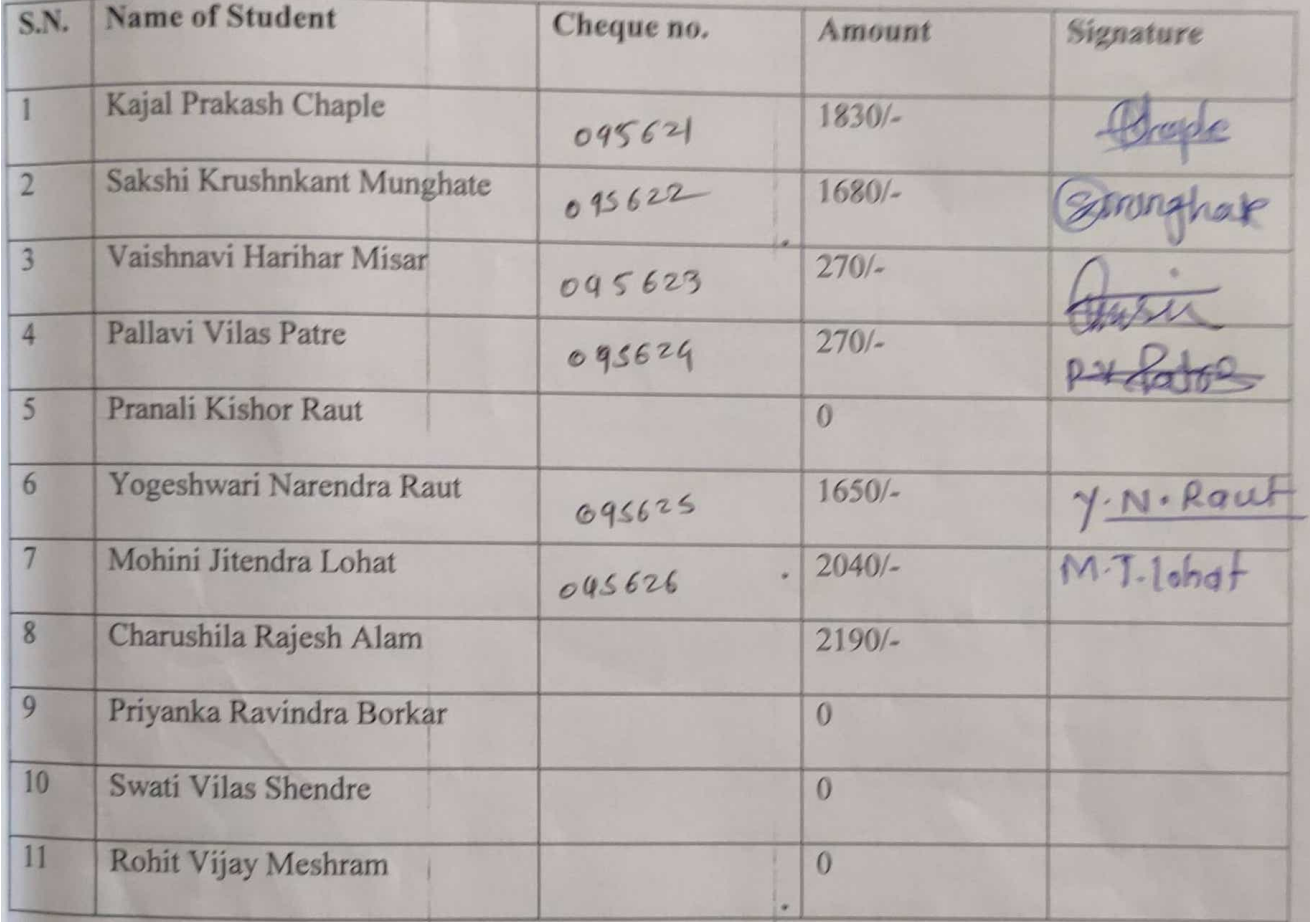 S.N. Name of Student Cheque no. Amount Signature
1 Kajal Prakash Chaple 095621 1830/- Chaple
2 Sakshi Krushnkant Munghate 095622 1680/- Smunghate
3 Vaishnavi Harihar Misar 095623 270/-
4 Pallavi Vilas Patre 095624 270/- P.V.
5 Pranali Kishor Raut 0
6 Yogeshwari Narendra Raut 095625 1650/- Y.N. Raut
7 Mohini Jitendra Lohat 095626 2040/- M.J. lohat
8 Charushila Rajesh Alam 2190/-
9 Priyanka Ravindra Borkar 0
10 Swati Vilas Shendre 0
11 Rohit Vijay Meshram 0